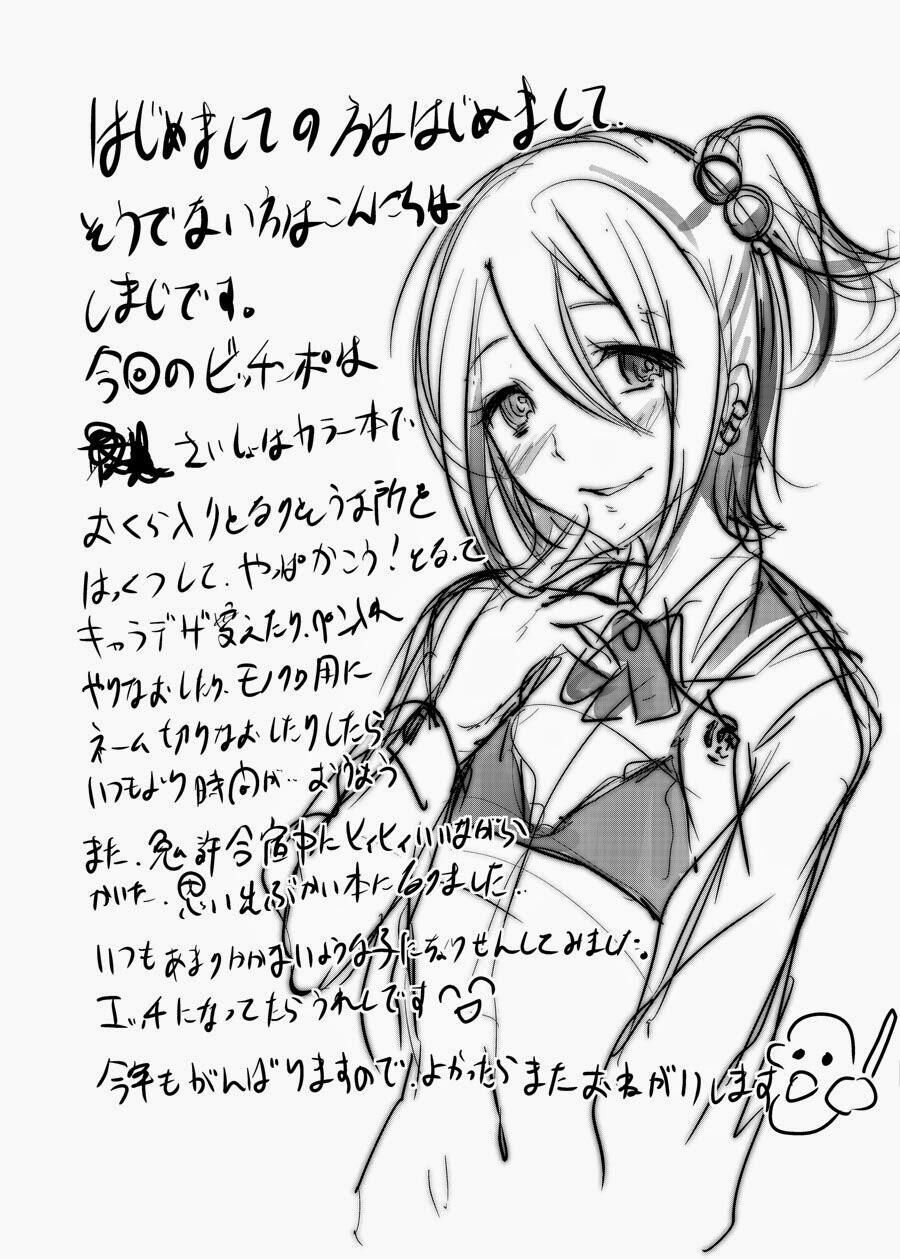 はじめましての方ははじめまして。
そうでない方はこんにちは
しまじです。
今回のビッチンポは
さいしょはカラー本で
おくら入りとなりそうな所を
はっくつして、やっぱかこう!となって
キャラデザ変えたり、ペン入れ
やりなおしたり、モノクロ用に
ネーム切りなおしたりしたら
いつもより時間が…
また、免許合宿中にヒィヒィいいながら
かいた、思い出ぶかい本になりました…
いつもあまりかかないような子にちょうせんしてみました。
エッチになってたらうれしいです
今年もがんばりますので、よかったらまたおねがいします